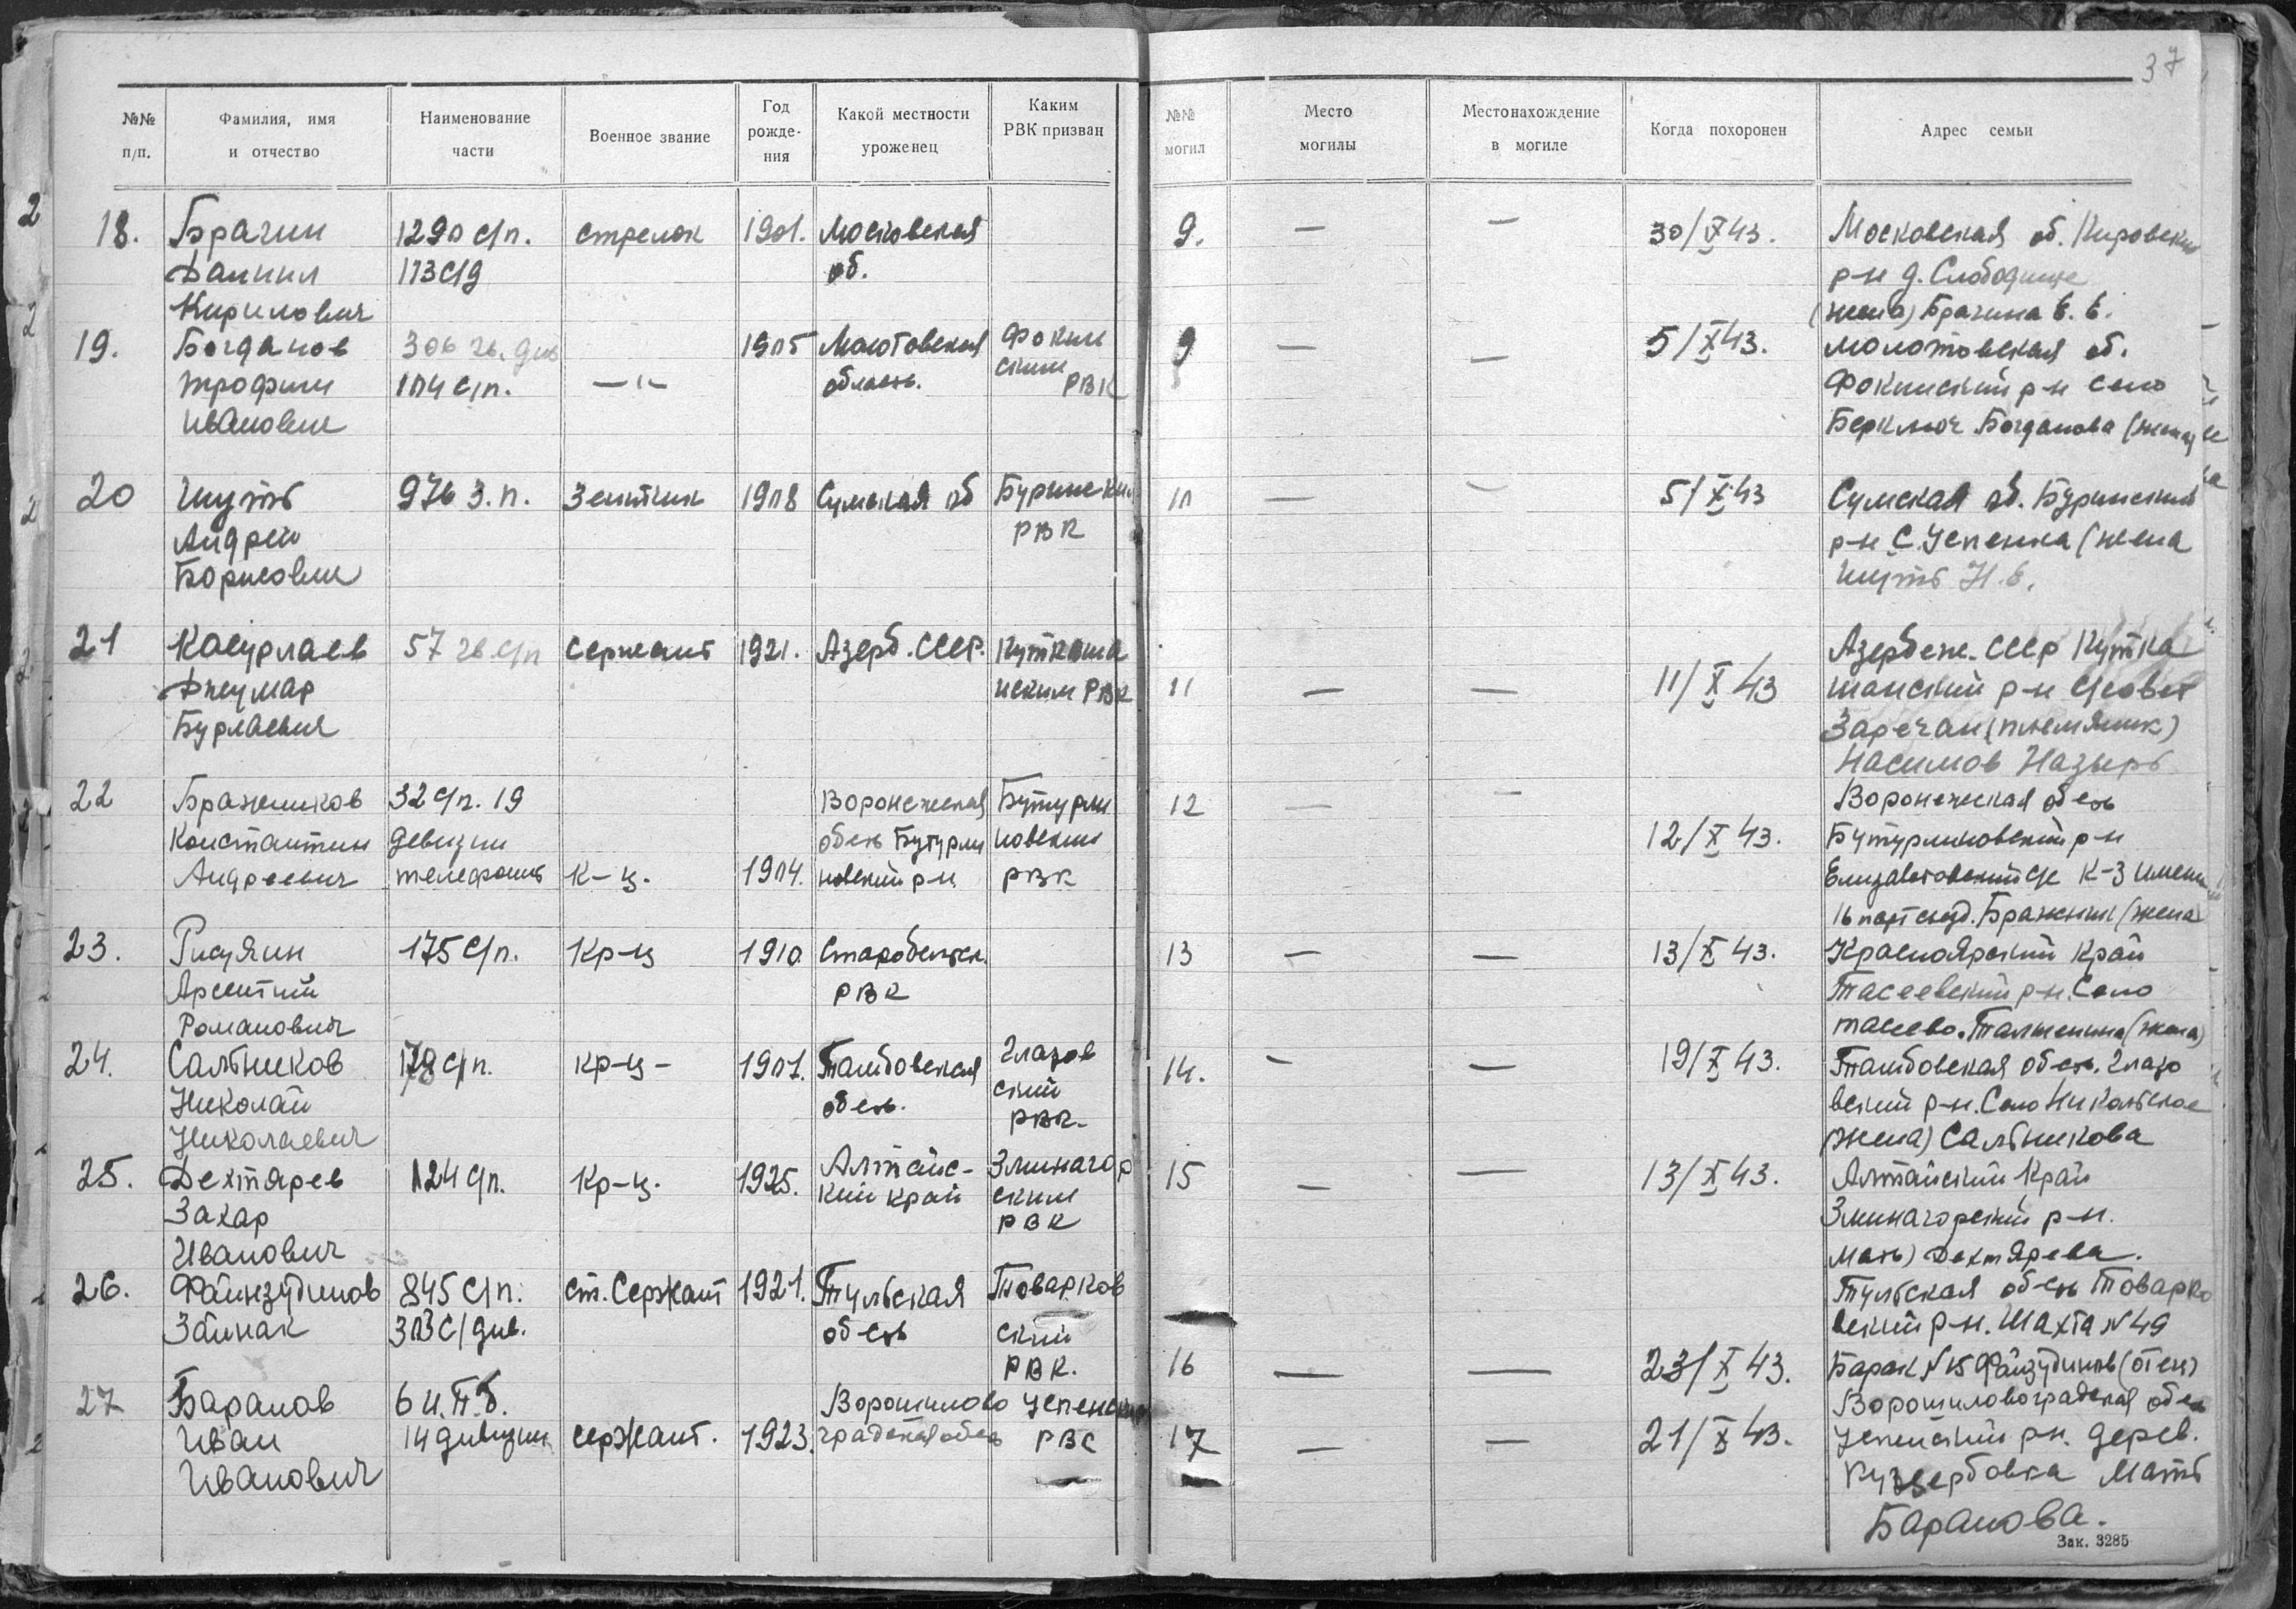 37
№№ п/п.
Фамилия, имя и отчество
Наименование части
Военное звание
Год рожде- ния
Какой местности уроженец
Каким РВК призван
№№ могил
Место могилы
Местонахождение в могиле
Когда похоронен
Адрес семьи
18. Брагин 1290 с/п. стрелок 1901. Московская 9. — — 30/IX 43. Московская об. Кировский
Даниил 173 с/д об. р-н д. Слободище
Кирилович (жена) Брагина Е. Е.
19. Богданов 306 гв. див 1905 Молотовская Фокин 9 — — 5/X 43. Молотовская об.
Трофим 104 с/п. —"— область. ским РВК Фокинский р-н село
Иванович Берключ Богданова (жена)
20 Шуть 976 з.п. Зенитчик 1908 Сумская об Буринский 10 — — 5/X 43 Сумская об. Буринский
Андрей РВК р-н С. Успенка (жена
Борисович Шуть Н. Е.
21 Касурлаев 57 гв. с/п Сержант 1921. Азерб. ССР. Куткаша 11 — — 11/X 43 Азербеж. ССР Кутка
Джумар нским РВК шанский р-н с/совет
Бурлаевич Заречан (племянник)
Насимов Назырь
22 Бражников 32 с/п. 19 Воронежская Бутурли 12 — — 12/X 43. Воронежская обсть
Константин девизии обсть Бутурли новским Бутурлиновский р-н
Андреевич телефонист К-ц. 1904. новский р-н РВК Елизаветовский с/с К-з имени
16 партсъезд. Бражник (жена)
23. 175 с/п. Кр-ц 1910 Старобельск. 13 — — 13/X 43. Красноярский край
Арсентий РВК Тасеевский р-н. Село
Романович Тасеево. (жена)
24. Сальников 178 с/п. кр-ц- 1901. Тамбовская Глазов 14. — — 19/X 43. Тамбовская обсть. Глазо
Николай обсть. ский вский р-н. Село Никольское
Николаевич РВК. (жена) Сальникова
25. Дехтярев 124 с/п. Кр-ц. 1925. Алтайс- Зминогор 15 — — 13/X 43. Алтайский край
Захар кий край ским Зминогорский р-н.
Иванович РВК Мать) Дехтярева.
26. Файнзудинов 845 с/п. ст. Сержант 1921. Тульская Товарков 16 — — 23/X 43. Тульская обсть Товарко
Зайнак 303 с/див. обсть ский вский р-н. Шахта №49
РВК. Барак №15 Файзудинов (отец)
27 Баранов 6 и.п.б. Ворошилово Успенский 17 — — 21/X 43. Ворошиловоградская обсть
Иван 14 дивизии сержант. 1923. градская обсть РВС Успенский р-н. дерев.
Иванович Мать
Баранова.
Зак. 3285